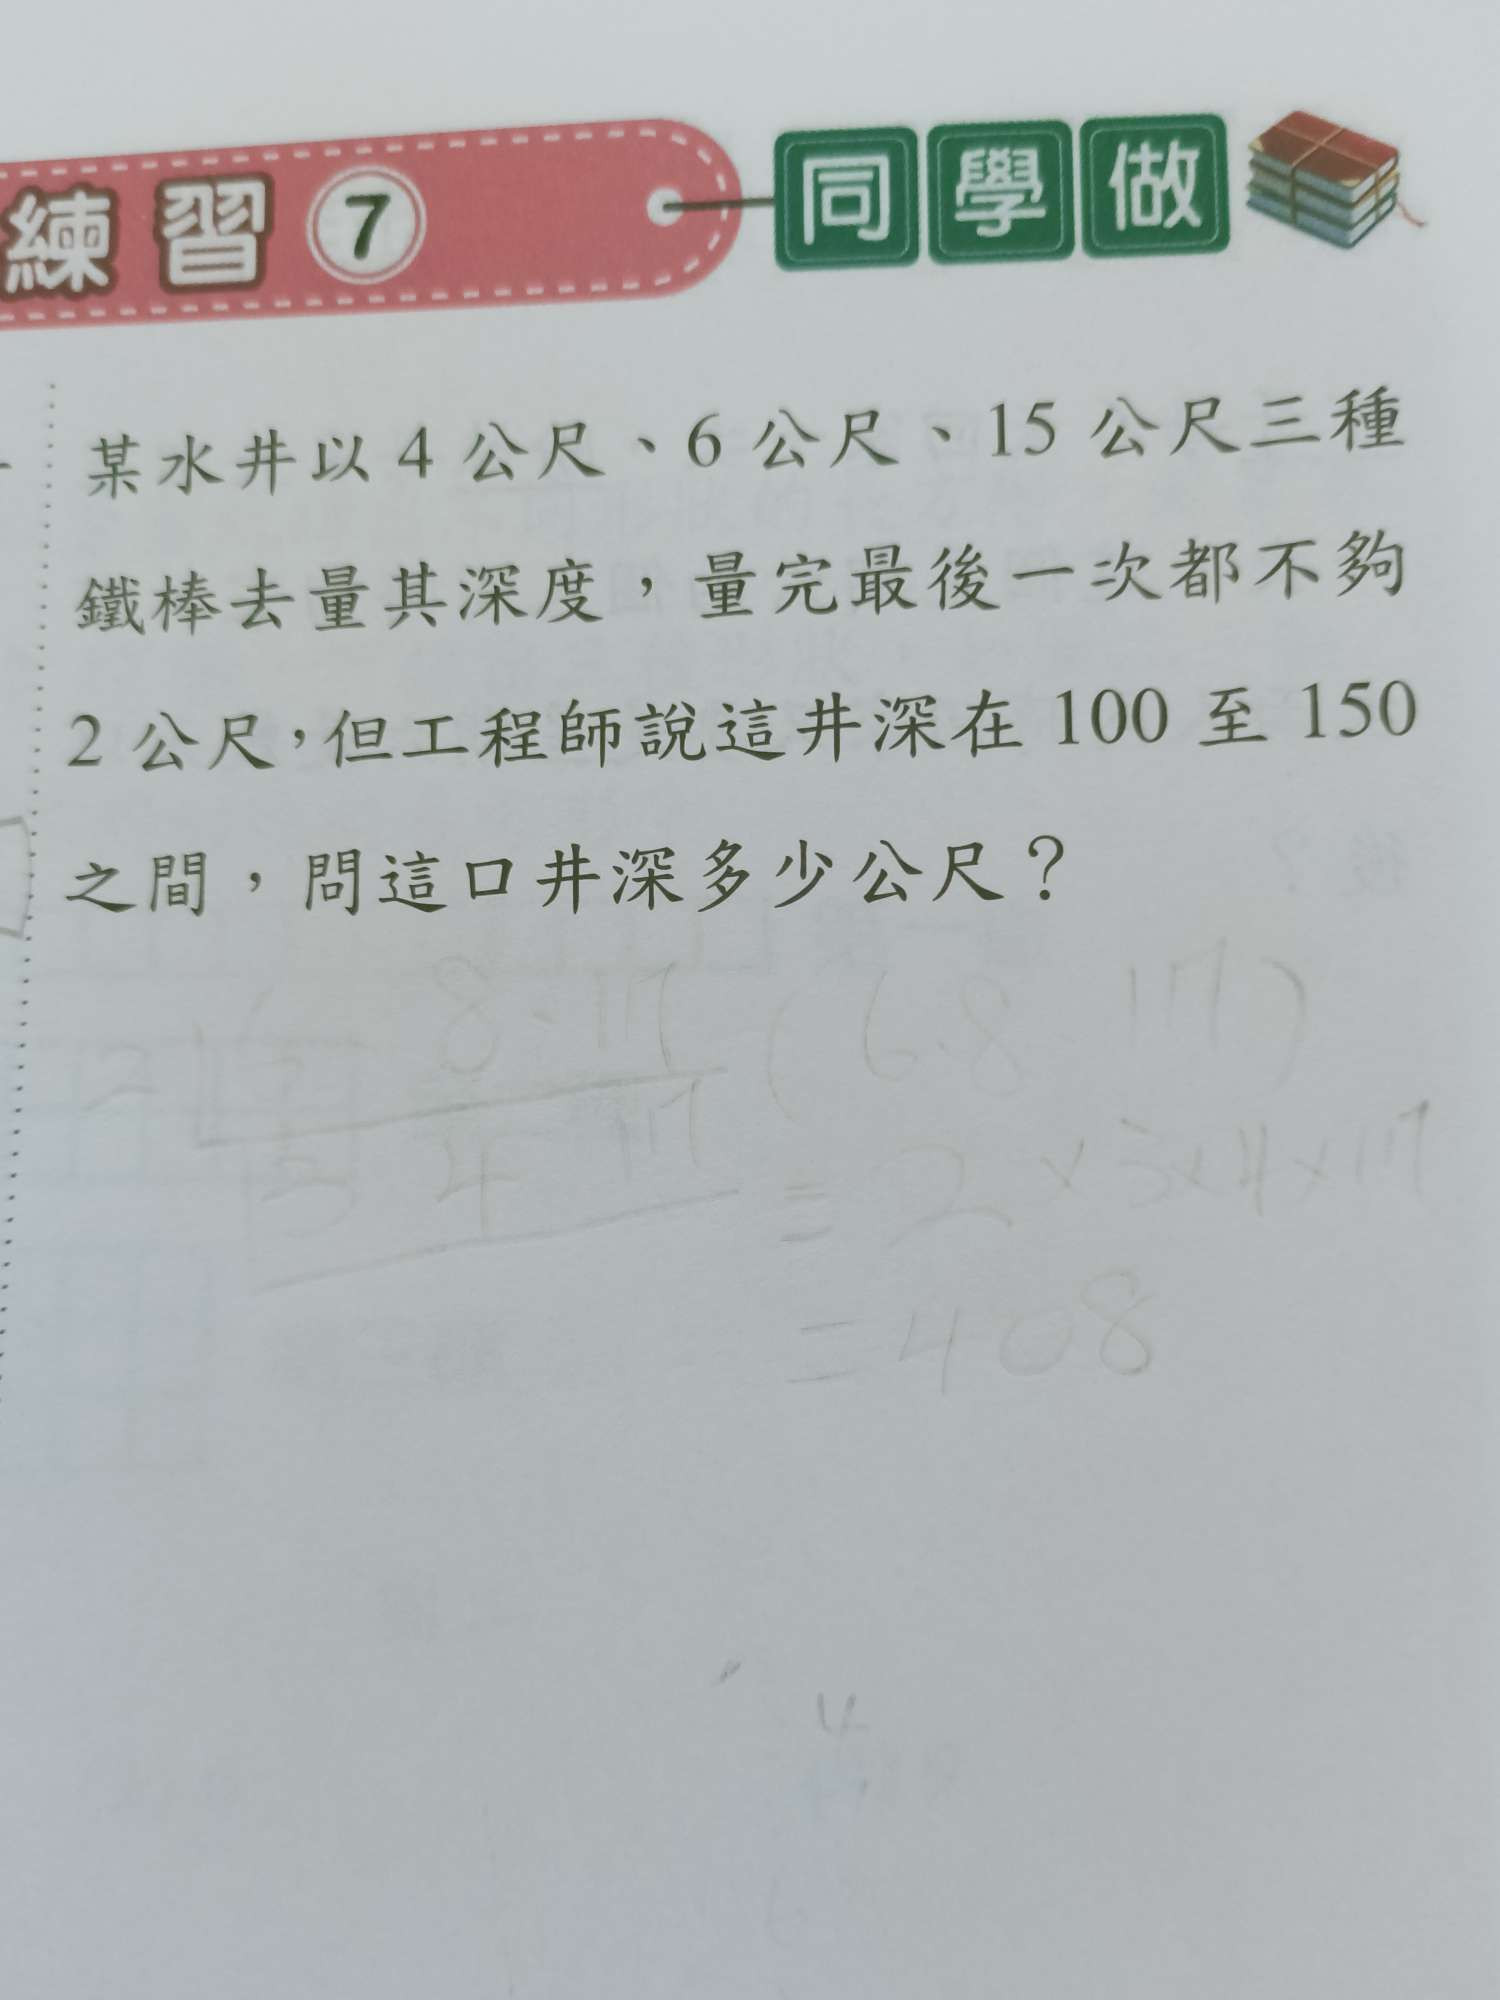 練習7 同學做
某水井以 4 公尺、6 公尺、15 公尺三種
鐵棒去量其深度，量完最後一次都不夠
2 公尺，但工程師說這井深在 100 至 150
之間，問這口井深多少公尺？
8.17 (6.8.17)
3 4 17 = 2×3×4×17
= 408